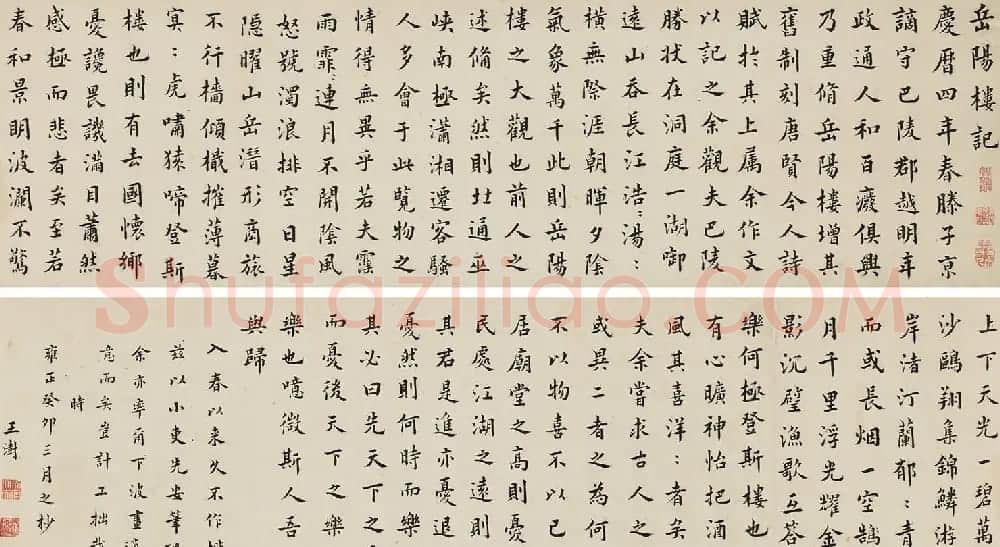 岳陽樓記
慶曆四年春滕子京
謫守巴陵郡越明年
政通人和百廢俱興
乃重脩岳陽樓增其
舊制刻唐賢今人詩
賦於其上属余作文
以記之余觀夫巴陵
勝状在洞庭一湖啣
遠山吞長江浩〻湯〻
橫無際涯朝暉夕陰
氣象萬千此則岳陽
樓之大觀也前人之
述俻矣然則北通巫
峽南極瀟湘遷客騷
人多會于此覽物之
情得無異乎若夫霪
雨霏〻連月不開陰風
怒號濁浪排空日星
隱曜山岳潛形商旅
不行檣傾檝摧薄暮
冥〻虎嘯猿啼登斯
樓也則有去國懷鄉
憂讒畏譏滿目蕭然
感極而悲者矣至若
春和景明波瀾不驚
上下天光一碧萬
沙鷗翔集錦鱗游
岸渚汀蘭郁〻青
而或長烟一空皓
月千里浮光耀金
影沉璧漁歌互答
樂何極登斯樓也
有心曠神怡把酒
風其喜洋〻者矣
夫余嘗求古人之
或異二者之為何
不以物喜不以己
居廟堂之高則憂
民處江湖之遠則
其君是進亦憂退
憂然則何時而樂
其必曰先天下之
而憂後天下之樂
樂也噫微斯人吾
與歸
入春以来久不作
茲以小吏先安筆
余亦率爾下波畫
意而矣豈計工拙
時
雍正癸卯三月之杪
王澍
Shufaziliao.COM